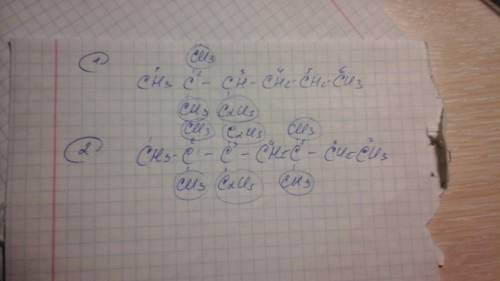 1)
CH3
1 2 3 4 5 6
CH3 - C - CH - CH2 - CH2 - CH3
CH3 C2H5
2)
CH3 C2H5 CH3
1 2 3 4 5 6 7
CH3 - C - C - CH2 - C - CH2 - CH3
CH3 C2H5 CH3